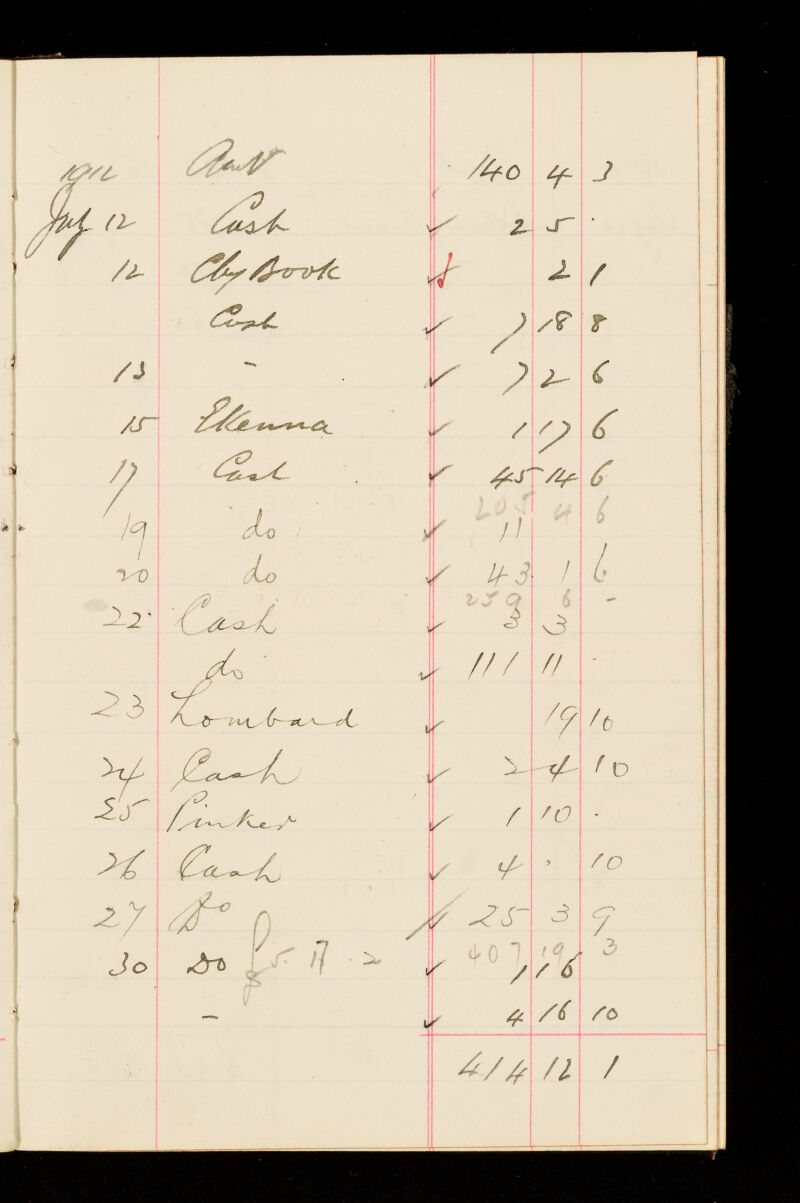 1912 Amt 140 4 3
July 12 Cash ✓ 2 5 ·
12 Cby Book ✓ 2 1
Cash ✓ 7 18 8
13 - ✓ 7 2 6
15 EKenna ✓ 1 17 6
17 Cash ✓ 45 14 6
205 4 6
19 do ✓ 11
20 do ✓ 43 1 6
259 6 -
22 Cash ✓ 3 3
do ✓ 111 11 ·
23 Lombard ✓ 19 10
24 Cash ✓ 2 4 10
25 Pinker ✓ 1 10 ·
26 Cash ✓ 4 · 10
27 Do ✓ 25 3 9
407 19 3
30 Do £5. 17. 2 ✓ 1 16
- ✓ 4 16 10
414 12 1